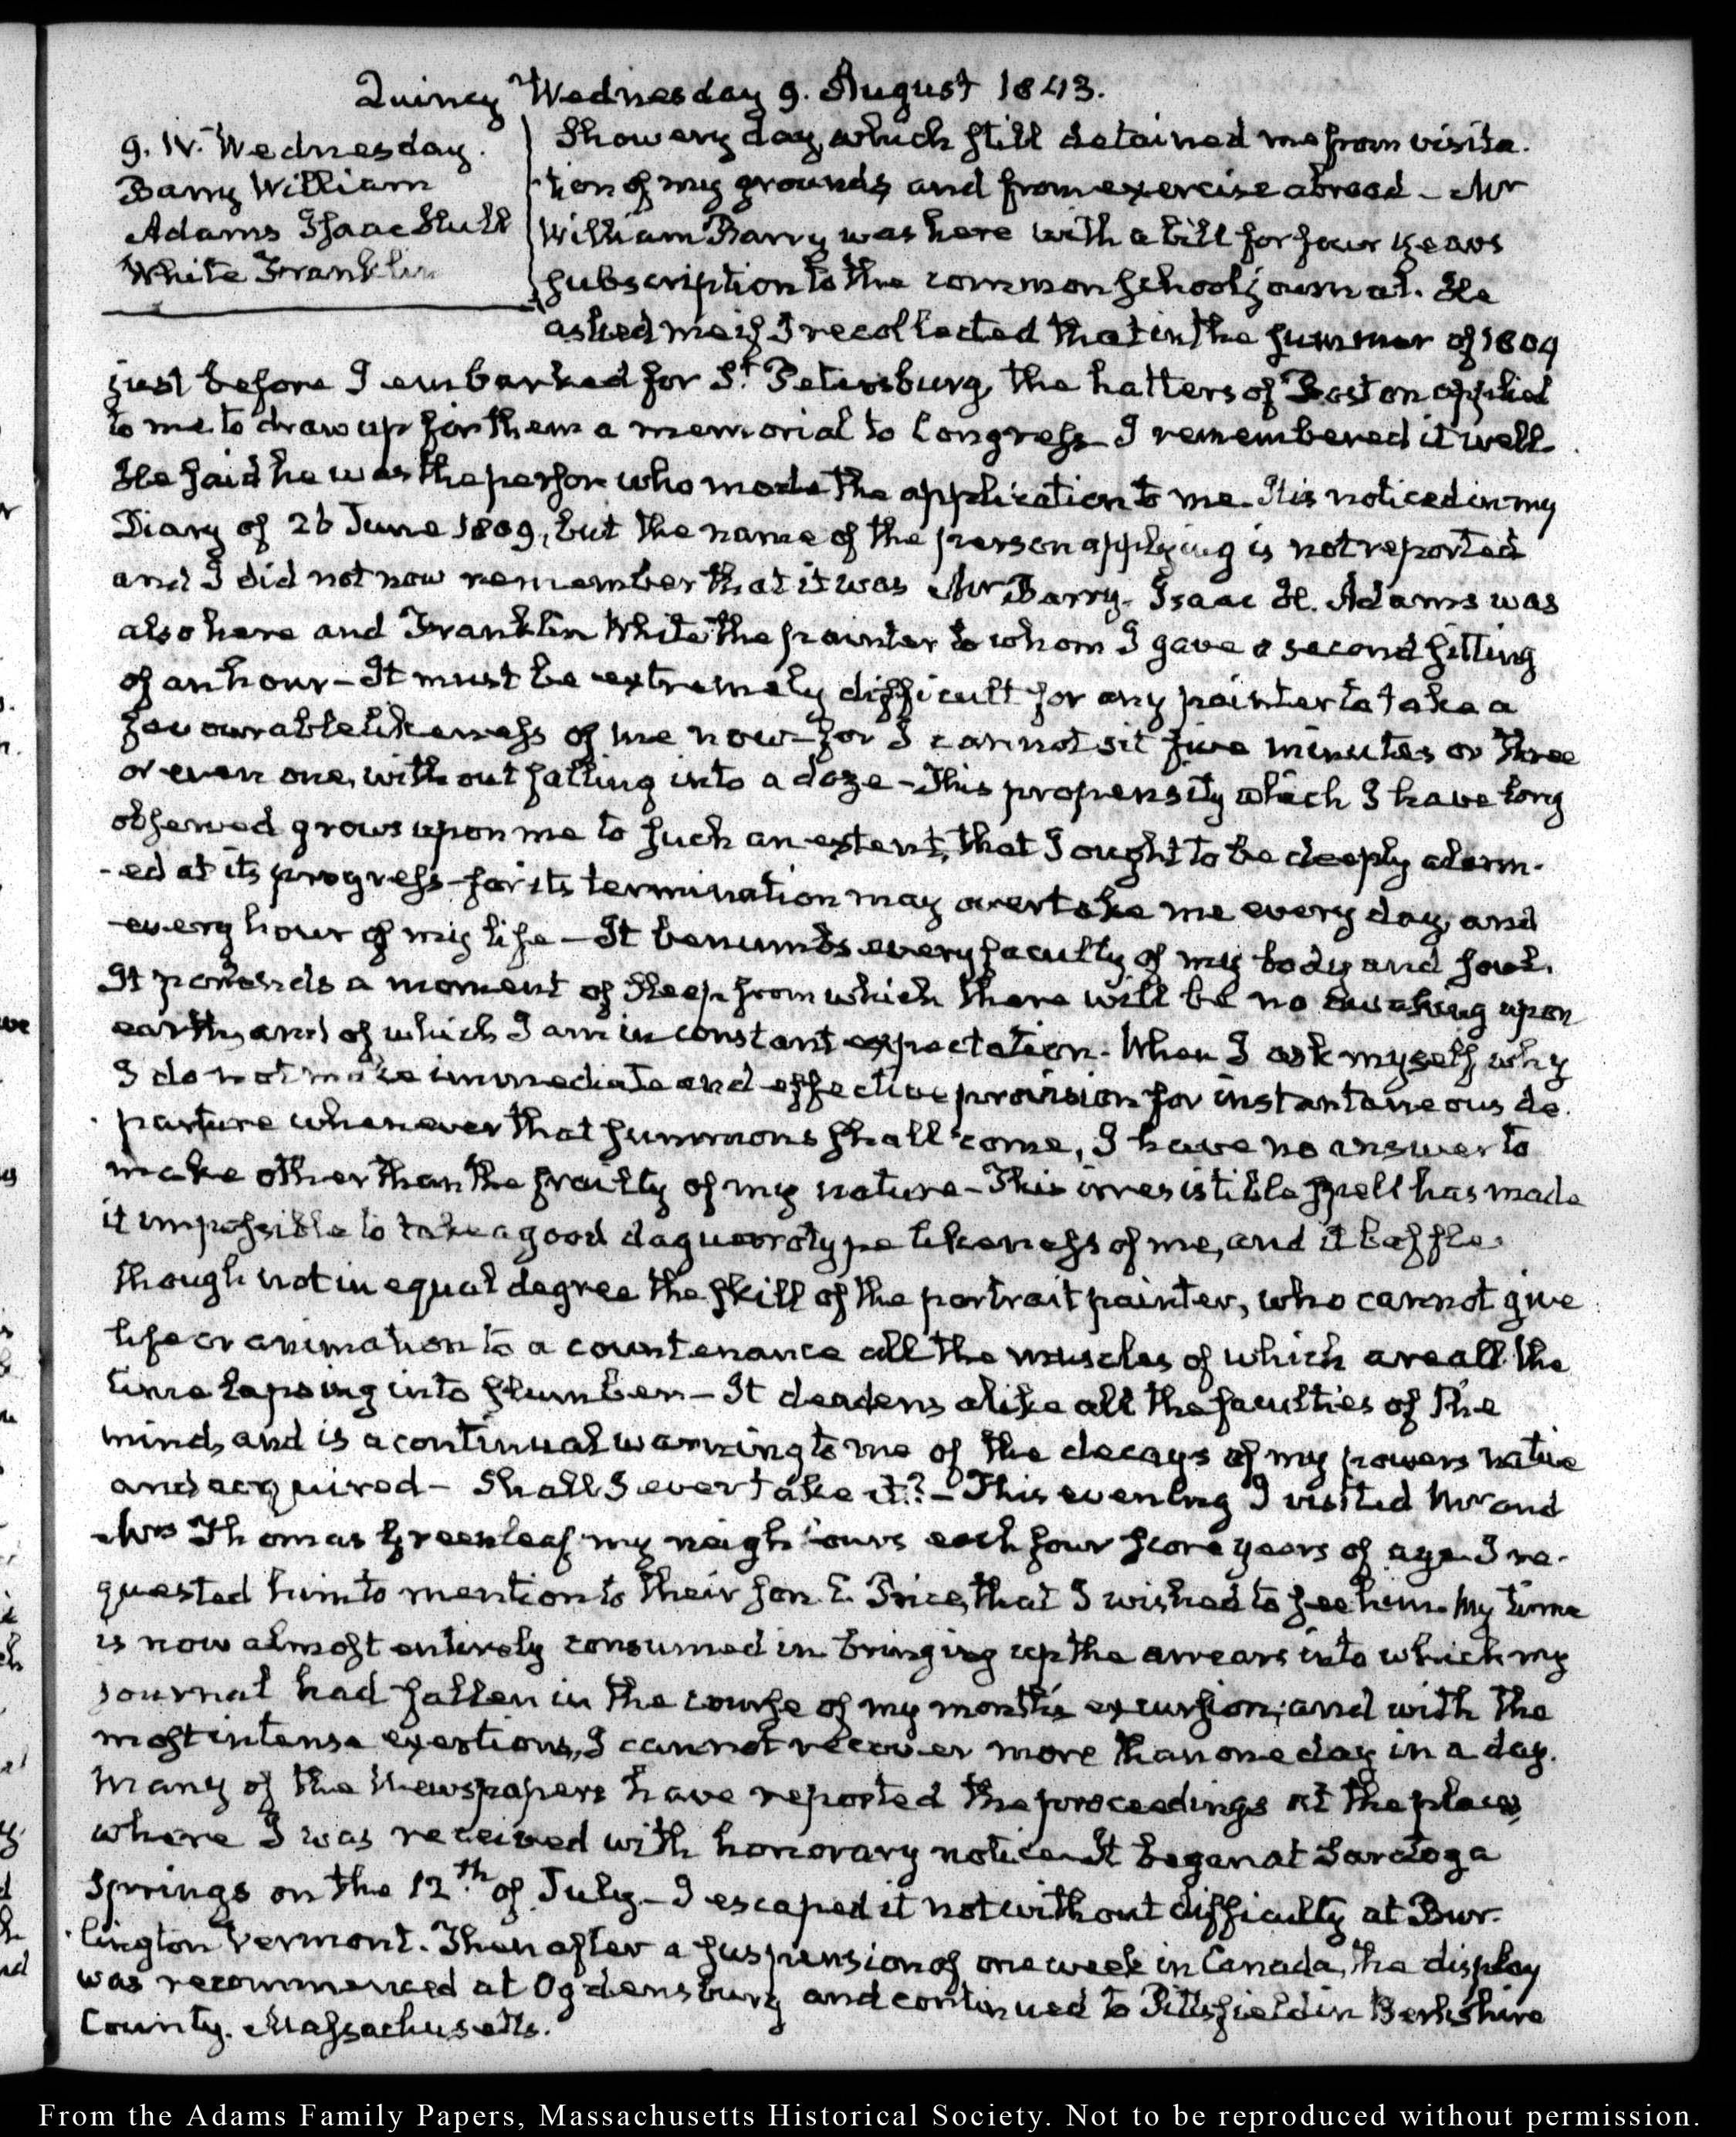 Quincy Wednesday 9. August 1843.
9. IV. Wednesday.
Barry William
Adams Isaac Hull
White Franklin
Showery day, which still detained me from visita-
tion of my grounds and from exercise abroad - Mr
William Barry was here with a bill for four years
subscription to the common school journal. He
asked me if I recollected that in the summer of 1809
just before I embarked for St. Petersburg, the hatters of Boston applied
to me to draw up for them a memorial to Congress - I remembered it well.
He said he was the person who made the application to me. It is noticed in my
Diary of 26 June 1809, but the name of the person applying is not reported
and I did not now remember that it was Mr Barry. Isaac H. Adams was
also here and Franklin White the painter to whom I gave a second sitting
of an hour - It must be extremely difficult for any painter to take a
favourable likeness of me now - for I cannot sit five minutes or three
or even one, without falling into a doze - This propensity which I have long
observed grows upon me to such an extent, that I ought to be deeply alarm-
-ed at its progress - for its termination may overtake me every day, and
every hour of my life - It benumbs every faculty of my body and soul.
It portends a moment of sleep from which there will be no awaking upon
earth, and of which I am in constant expectation. When I ask myself, why
I do not make immediate and effective provision for instantaneous de-
parture whenever that summons shall come, I have no answer to
make other than the frailty of my nature - This irresistible spell has made
it impossible to take a good daguerrotype likeness of me, and it baffles
though not in equal degree the skill of the portrait painter, who cannot give
life or animation to a countenance all the muscles of which are all the
time lapsing into slumber - It deadens alike all the faculties of the
mind, and is a continual warning to me of the decays of my powers native
and acquired - Shall I ever take it? - This evening I visited Mr and
Mrs Thomas Greenleaf my neighbours each four score years of age. I re-
quested him to mention to their son E. Price, that I wished to see him. My time
is now almost entirely consumed in bringing up the arrears into which my
journal had fallen in the course of my month's excursion; and with the
most intense exertions, I cannot recover more than one day in a day.
Many of the Newspapers have reported the proceedings at the places
where I was received with honorary notice. It began at Saratoga
Springs on the 12th of July - I escaped it not without difficulty at Bur-
lington Vermont. Then after a suspension of one week in Canada, the display
was recommenced at Ogdensburg and continued to Pittsfield in Berkshire
County. Massachusetts.
From the Adams Family Papers, Massachusetts Historical Society. Not to be reproduced without permission.